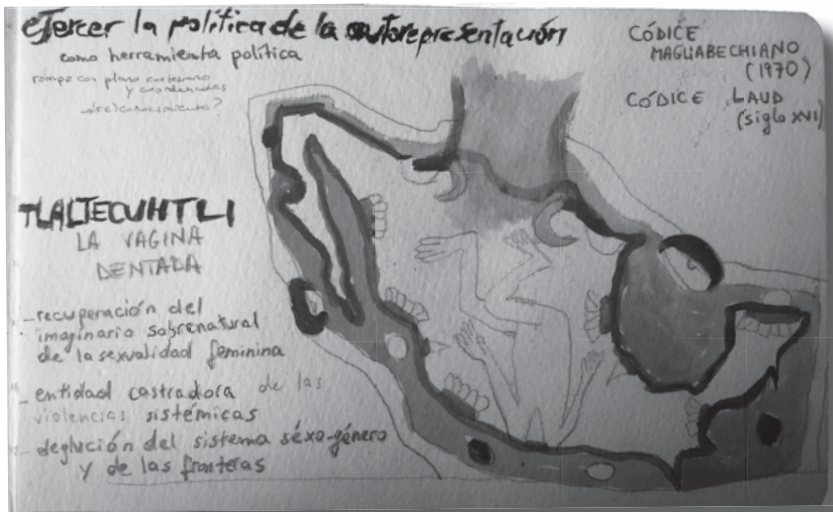 eJercer la política de la autorepresentación
como herramienta política
rompe con plano cartesiano
y coordenadas
¿(re)conocimiento?
CÓDICE
MAGLIABECHIANO
(1970)
CÓDICE LAUD
(siglo XVI)
TLALTECUHTLI
LA VAGINA
DENTADA
_recuperación del
imaginario sobrenatural
de la sexualidad feminina
_entidad castradora de las
violencias sistémicas
_deglución del sistema séxo-género
y de las fronteras